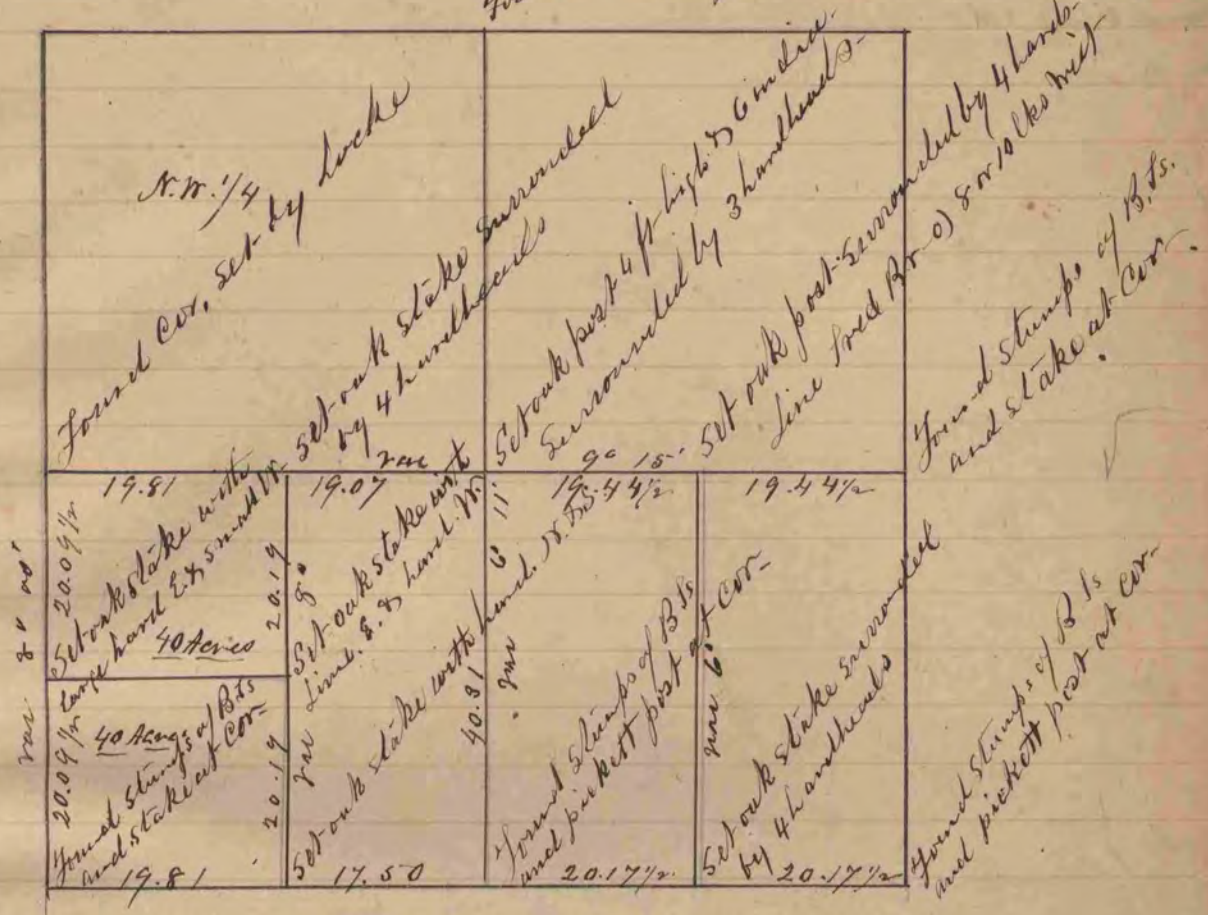 N.W. 1/4
Found Cor. set by Locke
Set oak stake surrounded
by 4 hardheads
Set oak post 4 ft high & 6 in dia.
Surrounded by 3 hardheads
Set oak post surrounded by 4 hards-
Line 8 or 10 lks West
Found stumps of B.Ts.
and stake at Cor.
var
9° 15'
19.81
19.07
19.44 1/2
19.44 1/2
var. 8°
20.09 1/2
Set oak stake with
large hard E. & small W.
20.19
40 Acres
var 8°
Set oak stake with
Lime. E. & hard. W.
Set oak stake with hard.
40.31
var 6° 11'
var 6°
20.09 1/2
40 Acres
Found stumps of B Ts
and stake at Cor-
20.19
Found stumps of B Ts
and pickett post at Cor-
Set oak stake surrounded
by 4 hardheads
Found stumps of B Ts
and pickett post at cor-
19.81
17.50
20.17 1/2
20.17 1/2